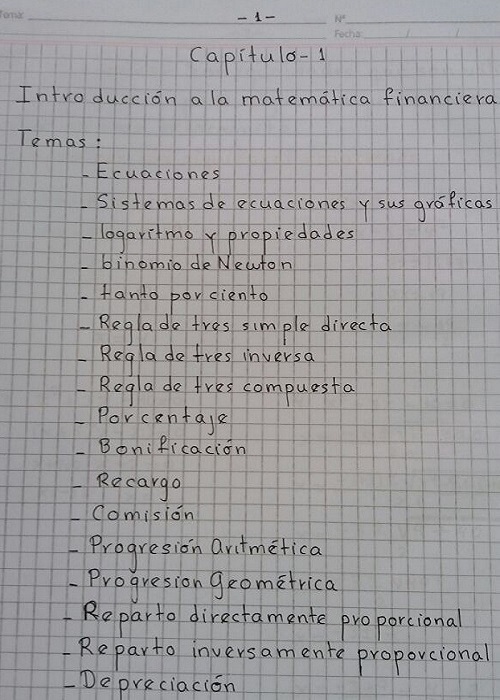 Tema:
- 1 -
Nº
Fecha: / /
Capítulo-1
Introducción a la matemática financiera
Temas:
- Ecuaciones
- Sistemas de ecuaciones y sus gráficas
- logarítmo y propiedades
- binomio de Newton
- tanto por ciento
- Regla de tres simple directa
- Regla de tres inversa
- Regla de tres compuesta
- Porcentaje
- Bonificación
- Recargo
- Comisión
- Progresión aritmética
- Progresion Geométrica
- Reparto directamente proporcional
- Reparto inversamente proporcional
- Depreciación